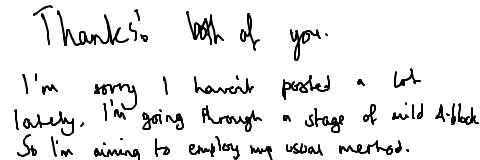 Thanks both of you.
I'm sorry I haven't posted a lot
lately. I'm going through a stage of mild A-block
So I'm aiming to employ my usual method.